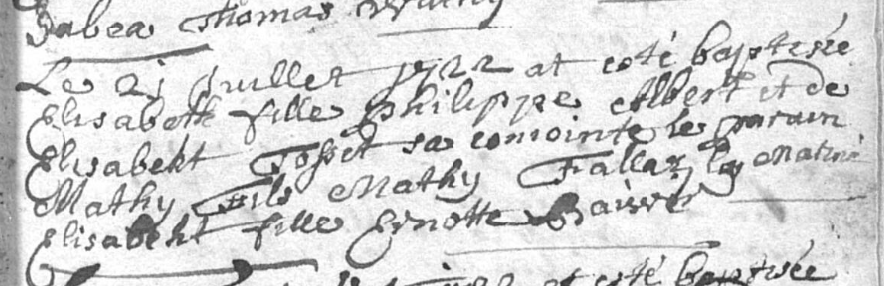 Thomas
Le 21 Juillet 1722 at esté baptisée
Elisabeth fille philippe Albert et de
Elisabeht Josset sa conointe le parain
Mathy Fils Mathy Fallaz la Matine
Elisabeht fille Ernotte
at esté baptisée